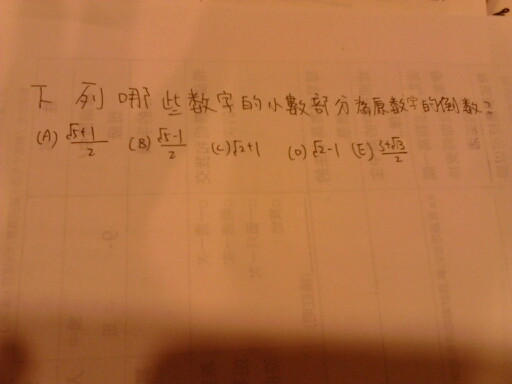 下列哪些数字的小數部分為原数字的倒数?
(A) (√5+1)/2 (B) (√5-1)/2 (C) √2+1 (D) √2-1 (E) (3+√13)/2